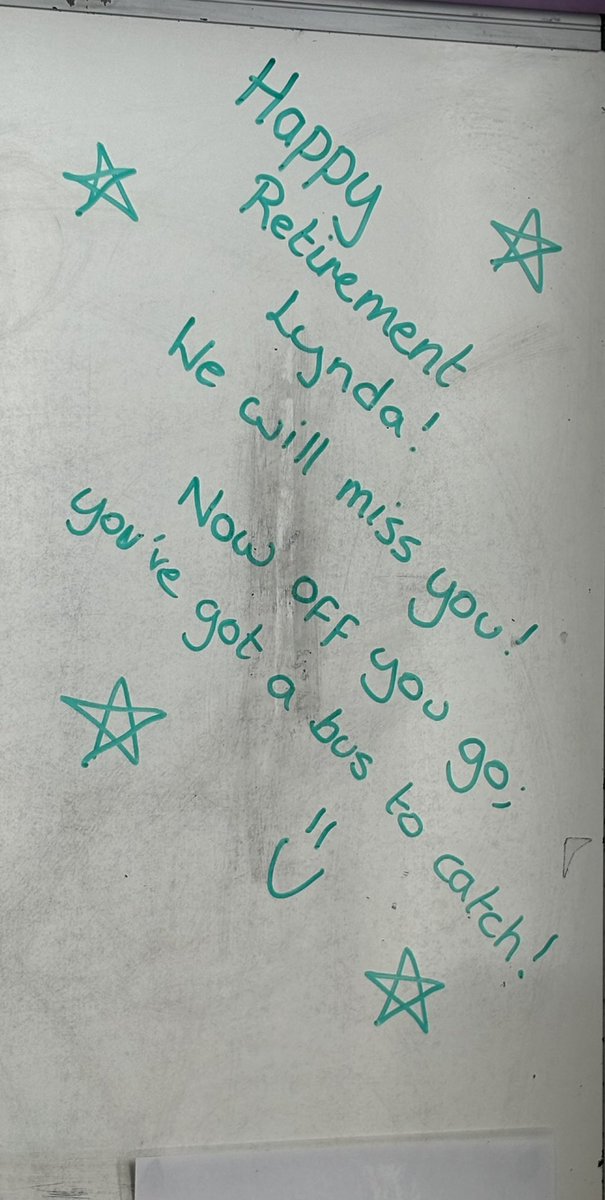 Happy
Retirement
Lynda!
We will miss you!
Now off you go;
you've got a bus to catch!